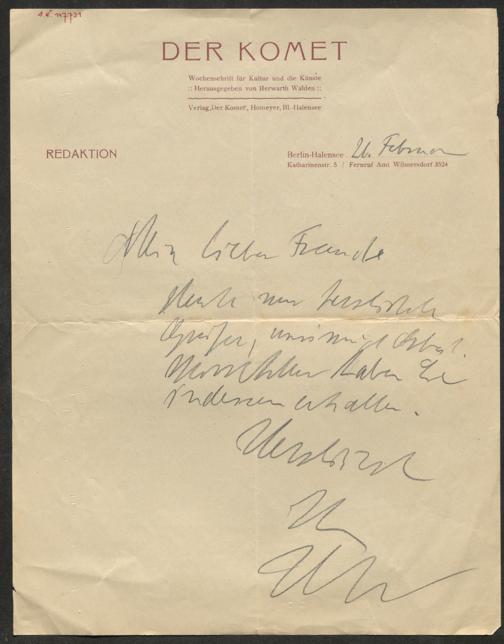 DER KOMET
Wochenschrift für Kultur und die Künste
:: Herausgegeben von Herwarth Walden ::
Verlag „Der Komet“, Homeyer, Bl.-Halensee
REDAKTION
Berlin-Halensee 26. Februar
Katharinenstr. 5 / Fernruf Amt Wilmersdorf 3524
Mein lieber Freund
Heute nur herzlichste
Grüße,
haben Sie
indessen erhalten.
Herzlichst
Ihr